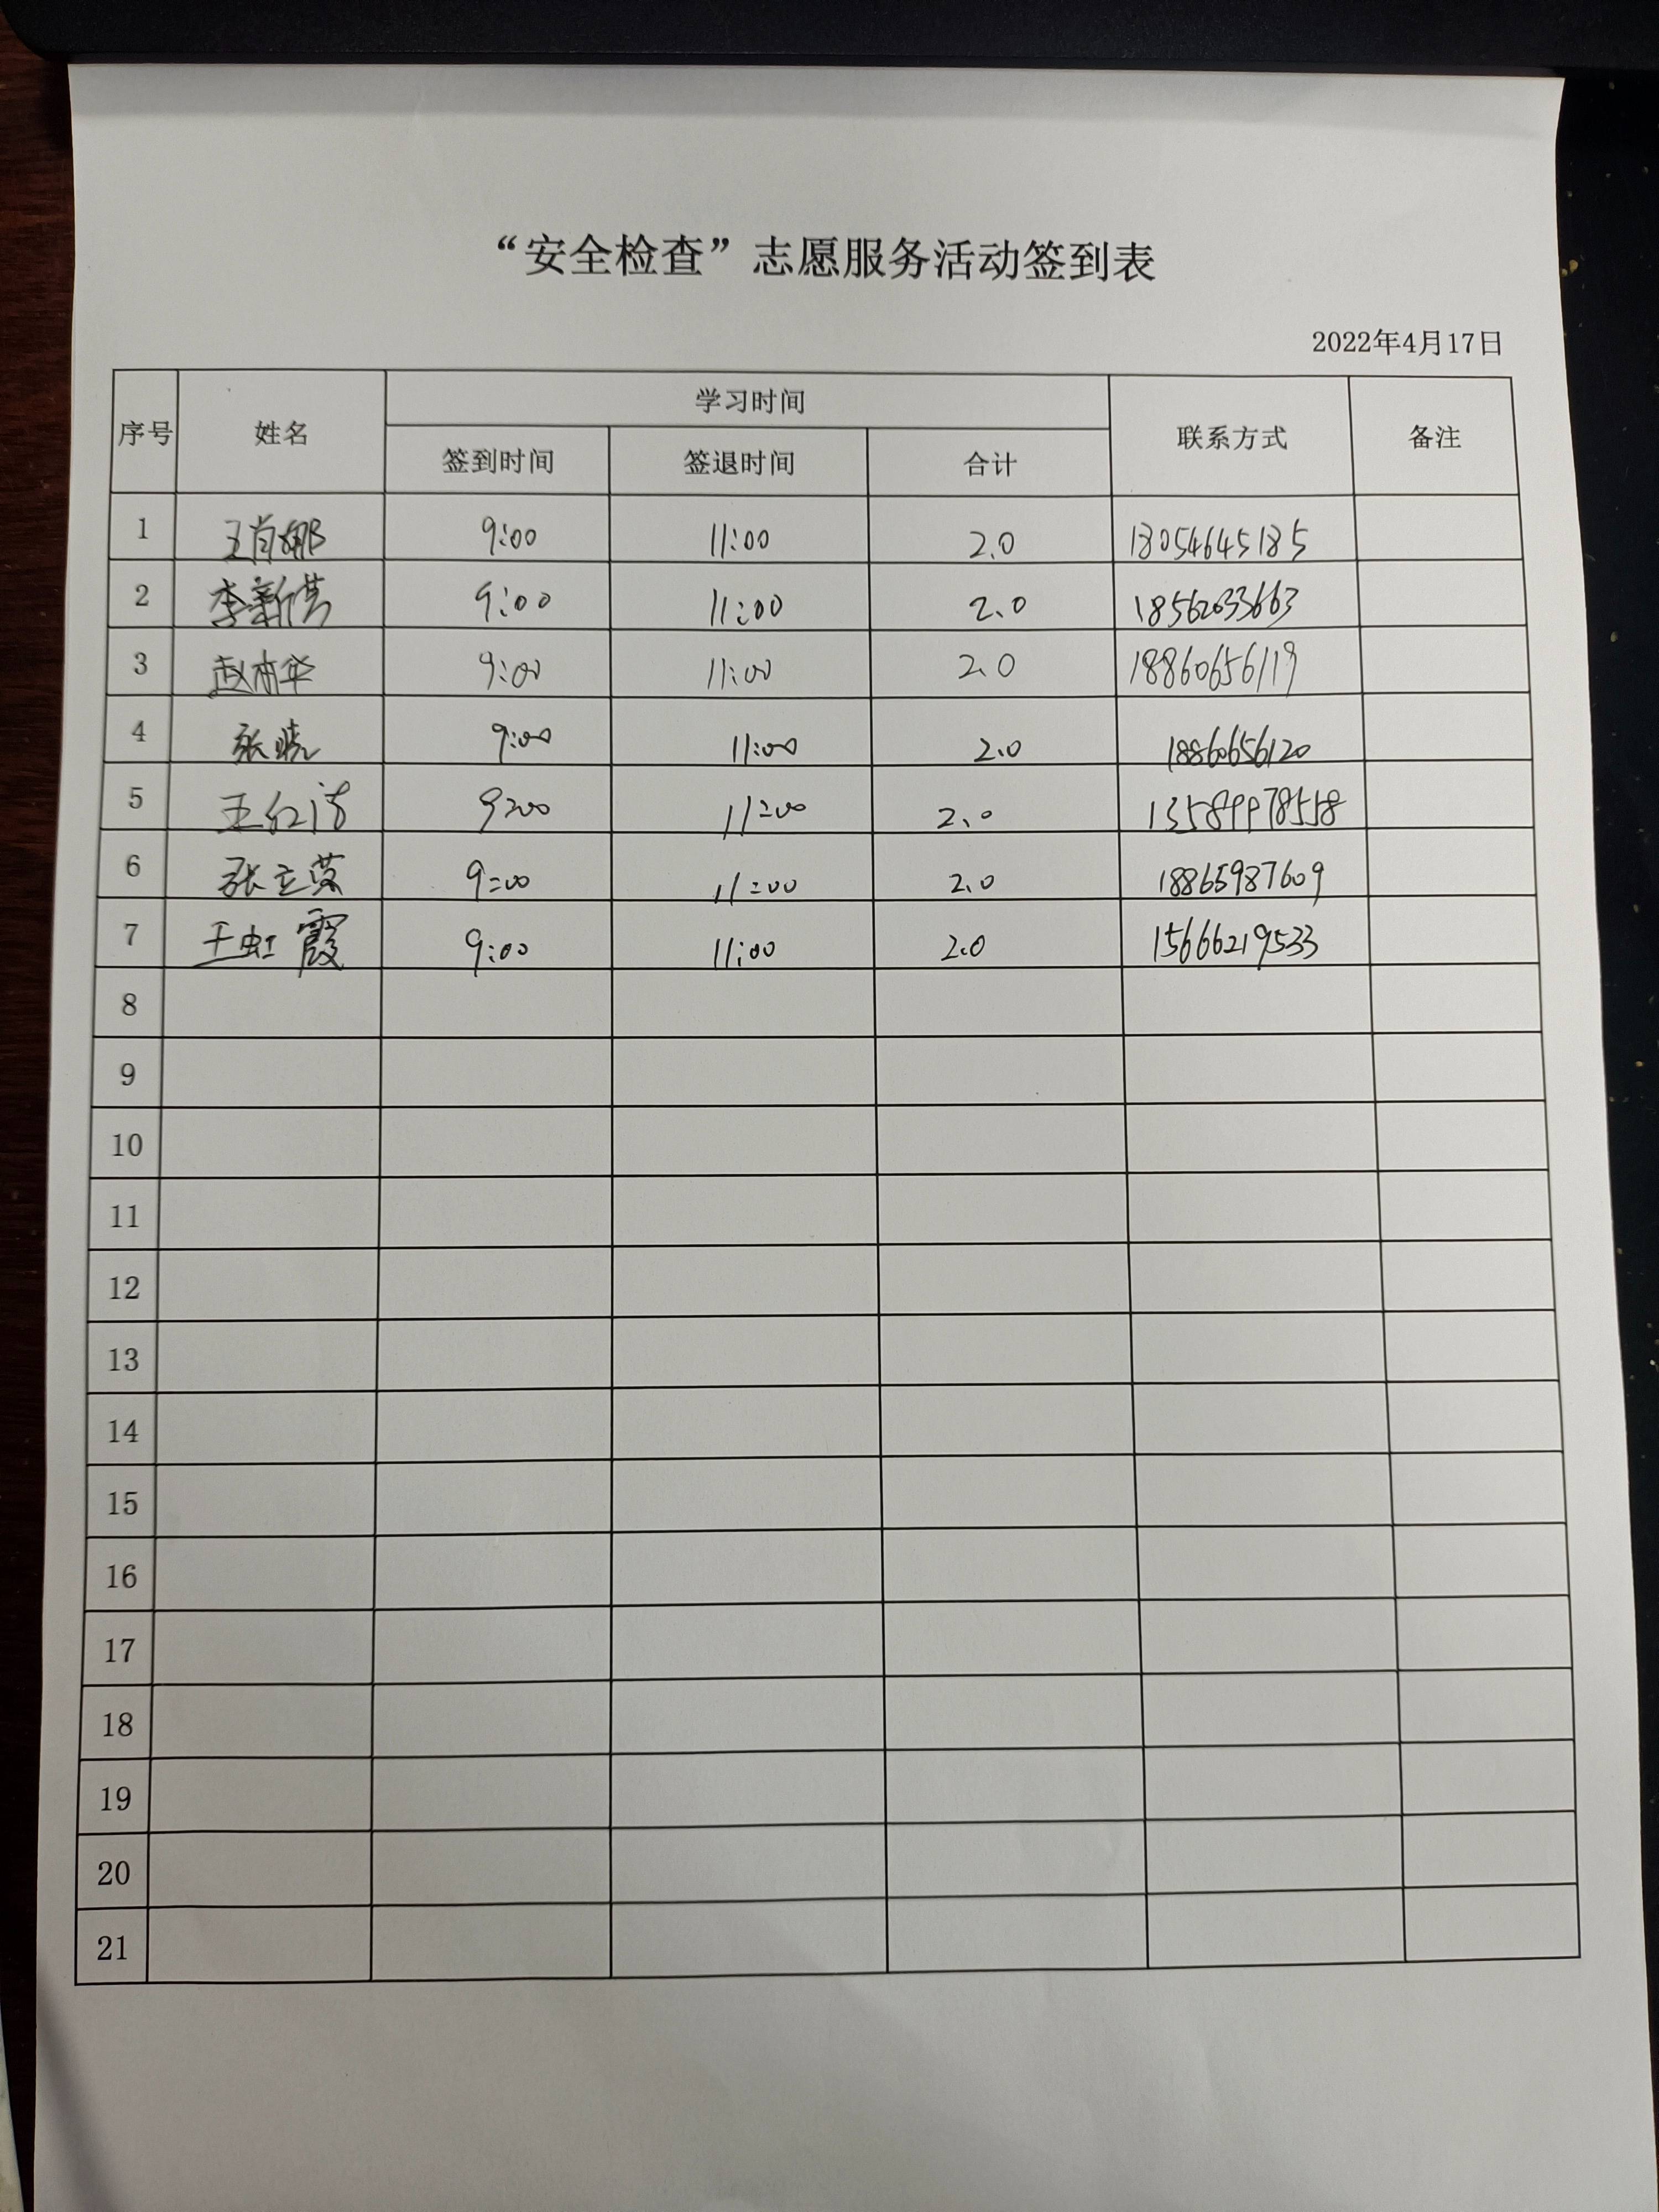 “安全检查”志愿服务活动签到表
2022年4月17日
序号 姓名 学习时间 联系方式 备注
签到时间 签退时间 合计
1 王肖娜 9:00 11:00 2.0 13054645185
2 李新 9:00 11:00 2.0 18562033663
3 赵 华 9:00 11:00 2.0 18860656119
4 张晓 9:00 11:00 2.0 18860656120
5 王红 9:00 11:00 2.0 13589978558
6 张立英 9:00 11:00 2.0 18865987609
7 王虹霞 9:00 11:00 2.0 15666219533
8
9
10
11
12
13
14
15
16
17
18
19
20
21